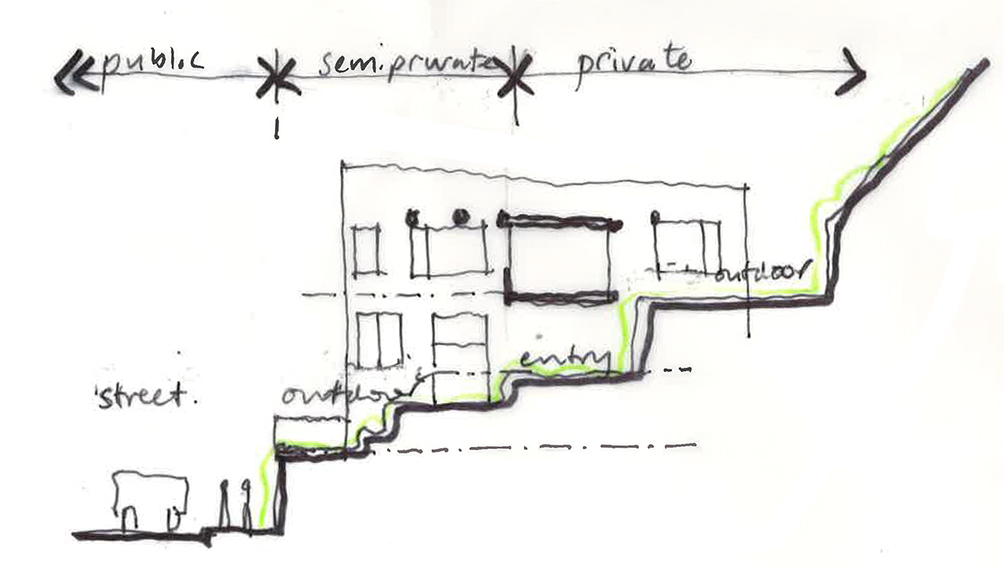 public semi private private
outdoor
entry
street. outdoor